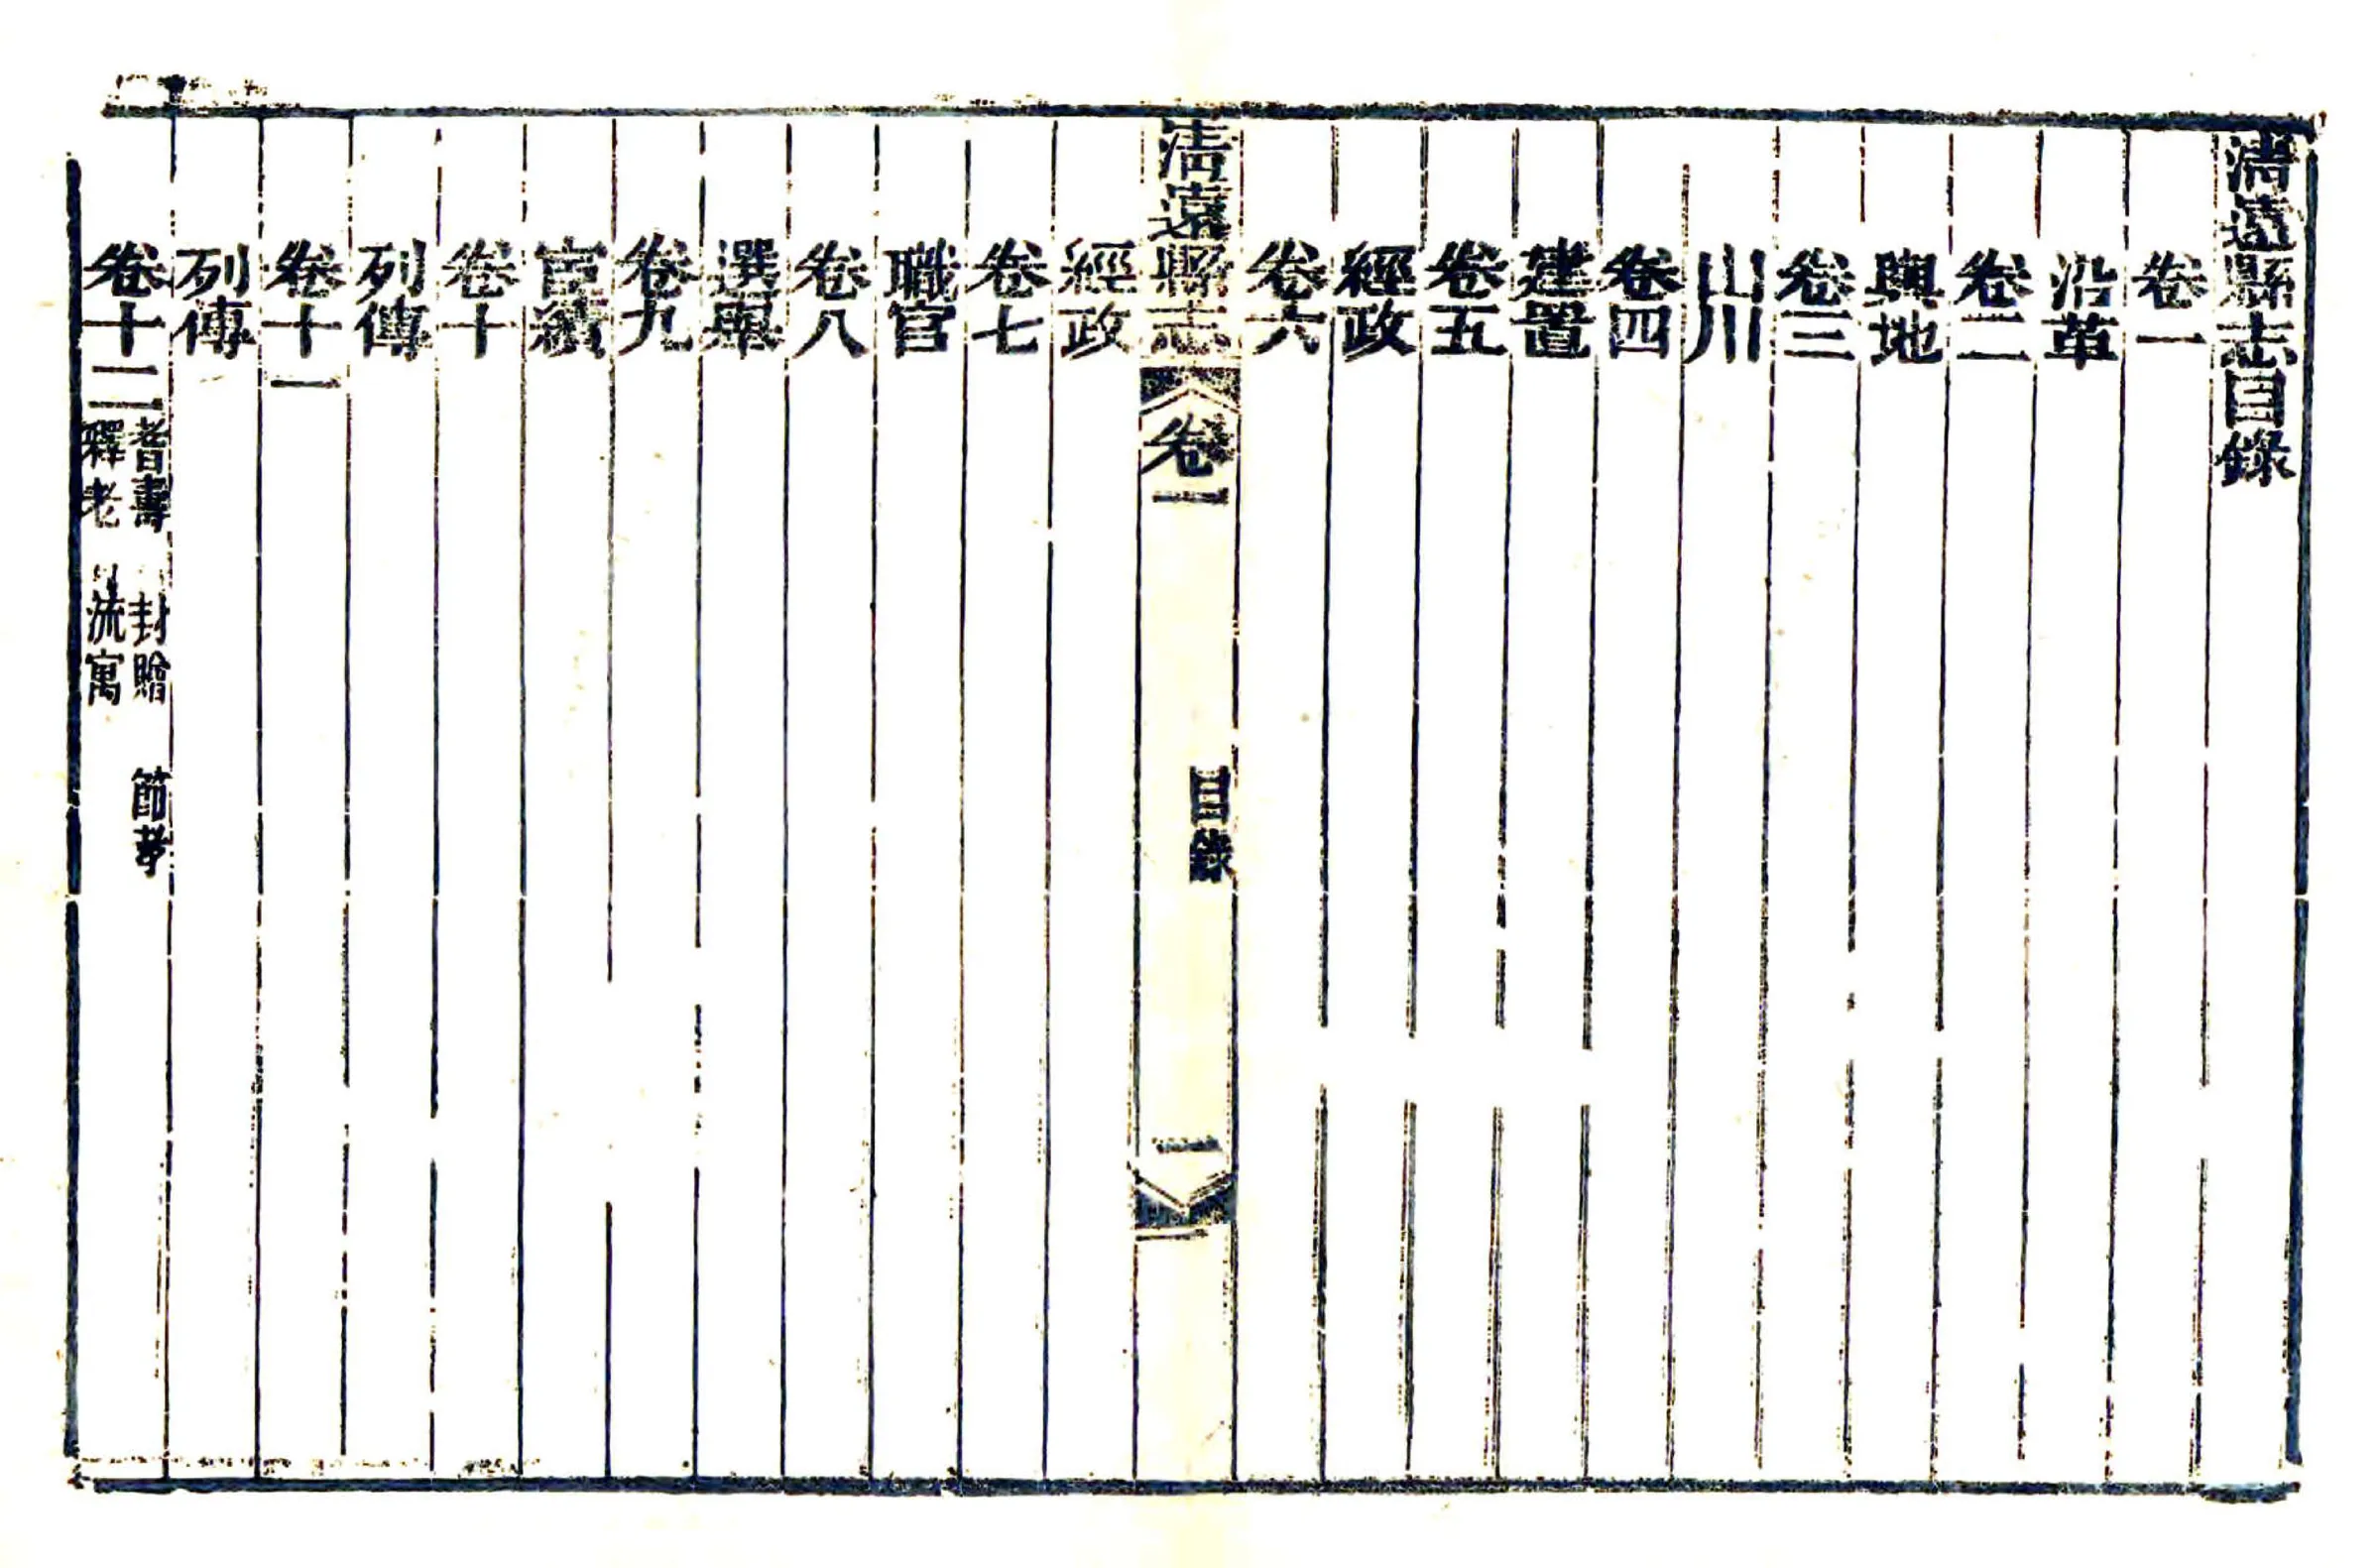 清遠縣志目錄
卷一
沿革
卷二
輿地
卷三
山川
卷四
建置
卷五
經政
卷六
清遠縣志
卷一
目錄
一
經政
卷七
職官
卷八
選舉
卷九
宦績
卷十
列傳
卷十一
列傳
卷十二
耆壽 封贈 節孝
釋老 流寓